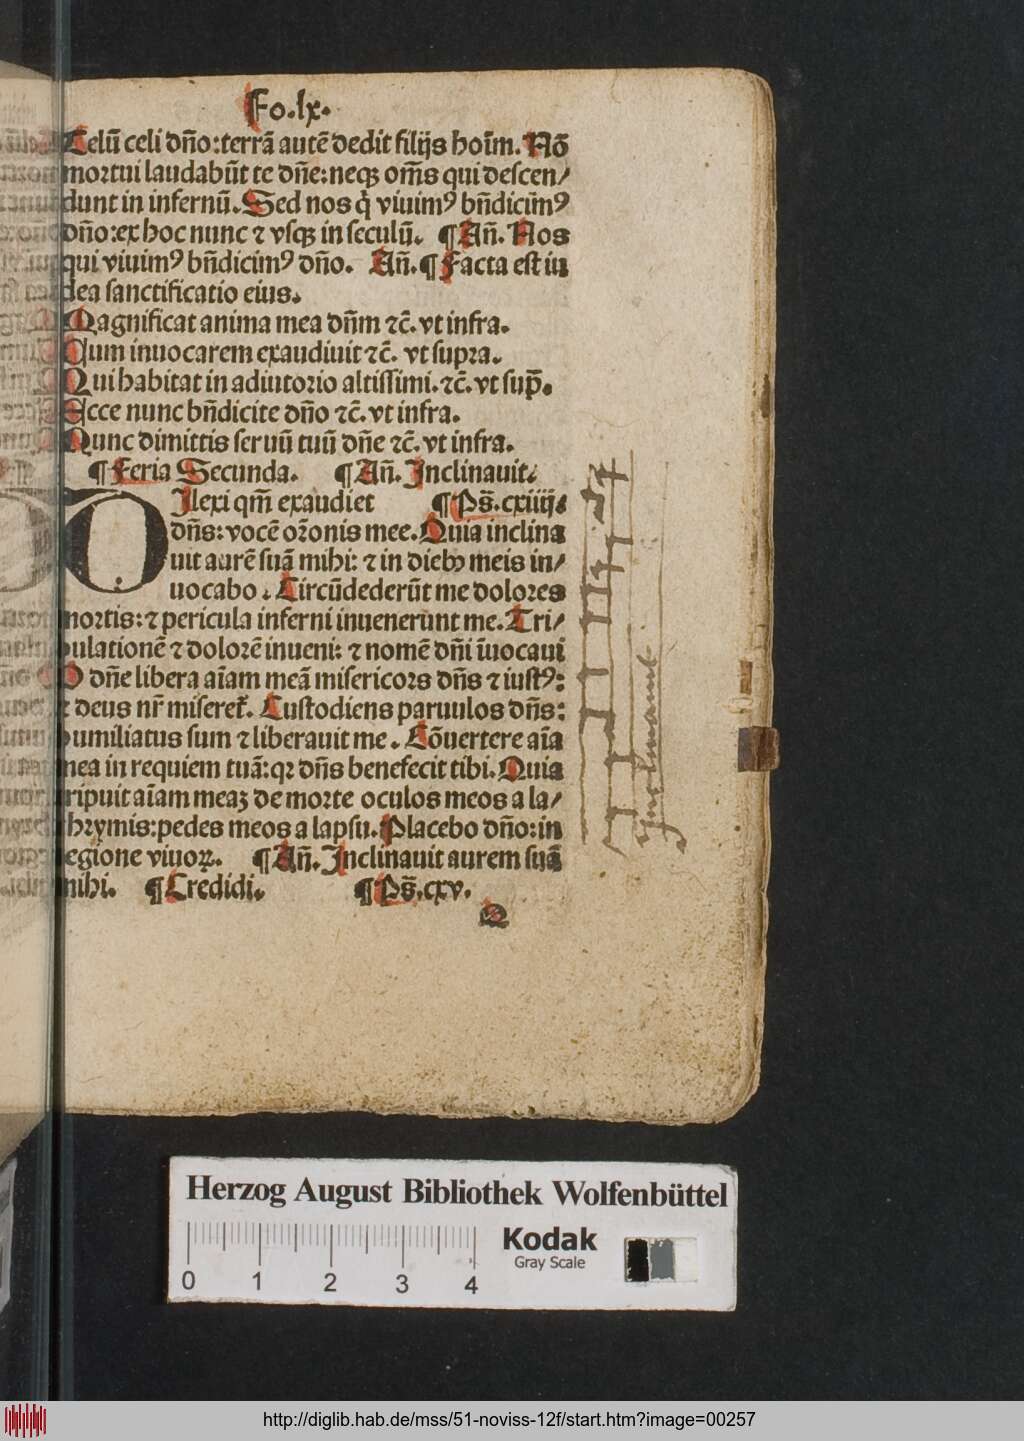 Fo.lx.
Celū celi dño:terrā autē dedit filijs hoīm. Nō
mortui laudabūt te dñe:neqꝫ oēs qui descen/
dunt in infernū. Sed nos q̇ viuimꝰ bñdicimꝰ
dño:ex hoc nunc ⁊ vsqꝫ in seculū. ¶ Añ. Nos
qui viuimꝰ bñdicimꝰ dño. Añ. ¶ Facta est iu
dea sanctificatio eius.
Magnificat anima mea dñm ⁊c̄. vt infra.
Cum inuocarem exaudiuit ⁊c̄. vt supra.
Qui habitat in adiutorio altissimi. ⁊c̄. vt sup̄.
Ecce nunc bñdicite dño ⁊c̄. vt infra.
Nunc dimittis seruū tuū dñe ⁊c̄. vt infra.
¶ Feria Secunda. ¶ Añ. Inclinauit.
DIlexi qm̄ exaudiet ¶ Ps̄. cxiiij.
dñs: vocē or̄onis mee. Quia inclina
uit aurē suā mihi: ⁊ in diebꝫ meis in/
uocabo. Circūdederūt me dolores
mortis: ⁊ pericula inferni inuenerunt me. Tri/
bulationē ⁊ dolorē inueni: ⁊ nomē dñi īuocaui
O dñe libera aīam meā misericors dñs ⁊ iustꝰ:
⁊ deus nr̄ miseret̄. Custodiens paruulos dñs:
humiliatus sum ⁊ liberauit me. Cōuertere aīa
mea in requiem tuā: qꝛ dñs benefecit tibi. Quia
eripuit aīam meaꝫ de morte oculos meos a la/
chrymis: pedes meos a lapsu. Placebo dño: in
regione viuoꝝ. ¶ Añ. Inclinauit aurem suā
mihi. ¶ Credidi. ¶ Ps̄. cxv.
Herzog August Bibliothek Wolfenbüttel
Kodak
Gray Scale
0 1 2 3 4
http://diglib.hab.de/mss/51-noviss-12f/start.htm?image=00257